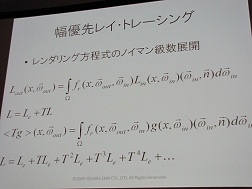 幅優先レイ・トレーシング
• レンダリング方程式のノイマン級数展開
L_out(x, ω⃗_out) = ∫_Ω f_r(x, ω⃗_out, ω⃗_in) L_in(x, ω⃗_in)(ω⃗_in, n⃗) dω⃗_in
L = L_e + TL
<Tg>(x, ω⃗_out) = ∫_Ω f_r(x, ω⃗_out, ω⃗_in) g(x, ω⃗_in)(ω⃗_in, n⃗) dω⃗_in
L = L_e + TL_e + T²L_e + T³L_e + T⁴L_e + ...